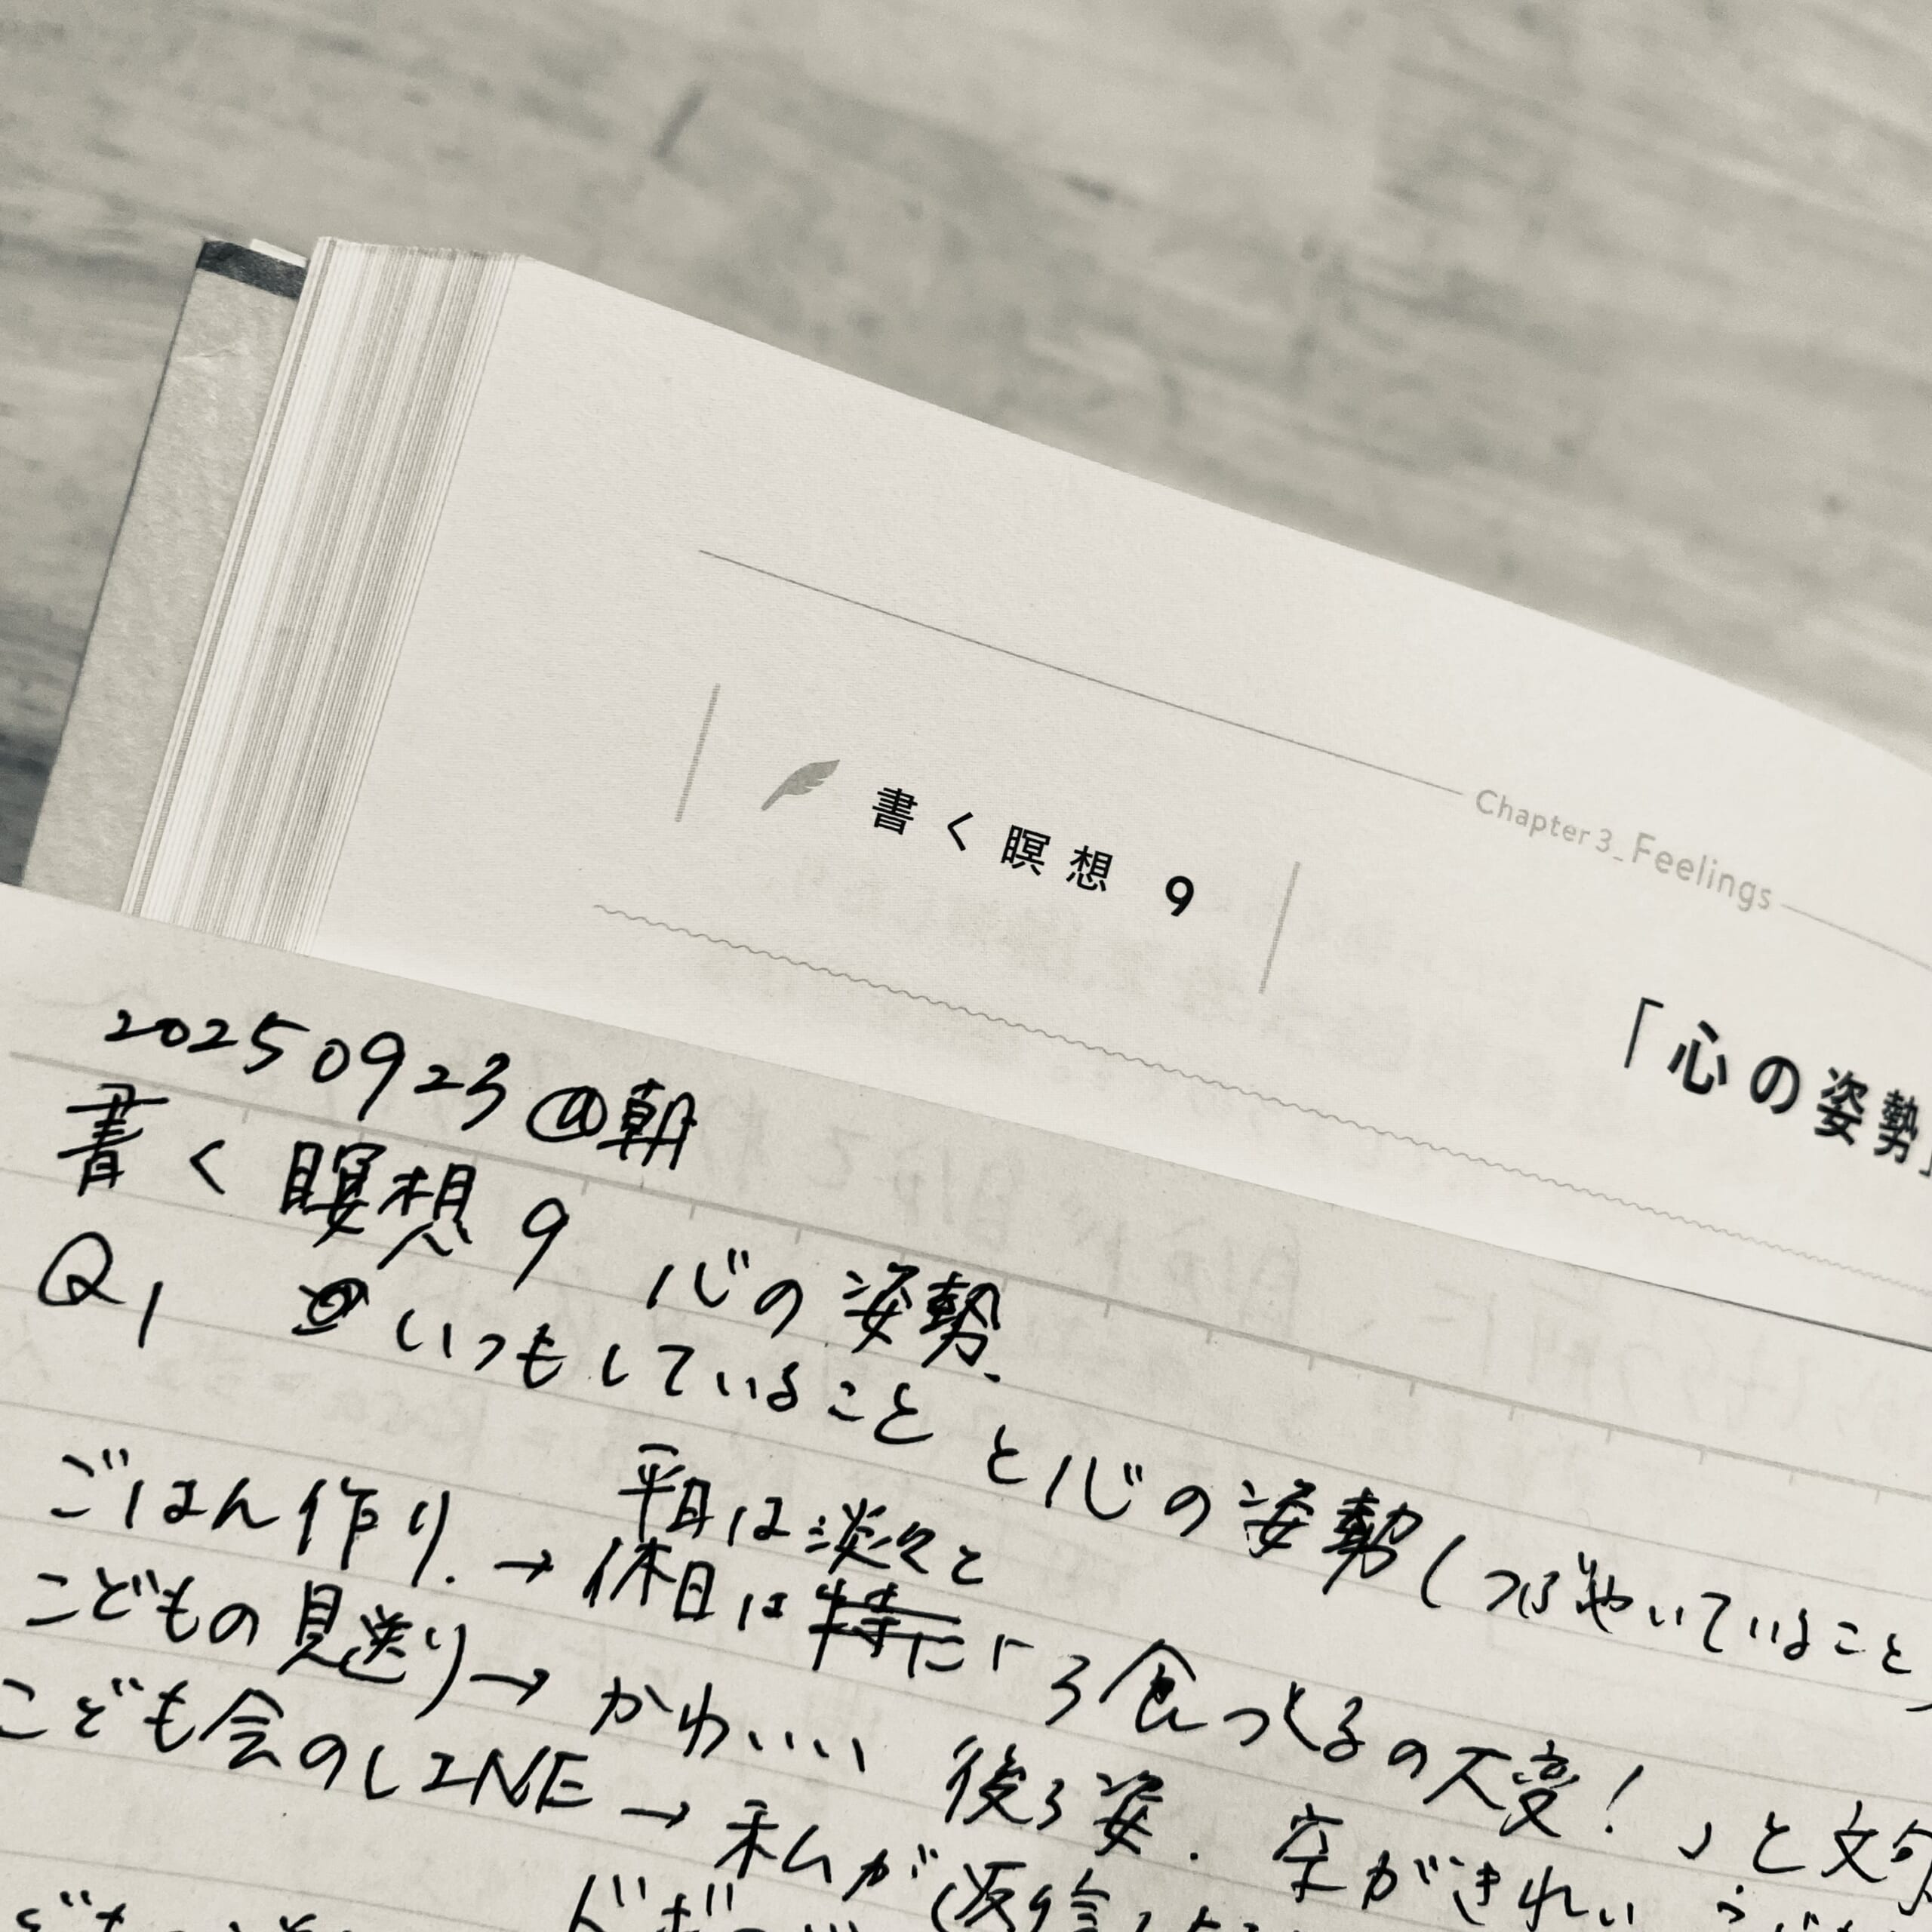 Chapter 3_Feelings
書く瞑想 9
「心の姿勢」
20250923@朝
書く瞑想9 心の姿勢.
Q1 いつもしていること と心の姿勢(つぶやいていること)
ごはん作り. → 平日は淡々と
休日は特に「3食つくるの大変!」と文句
こどもの見送り→ かわいい 後ろ姿. 空がきれい
こども会のLINE → 私が返信